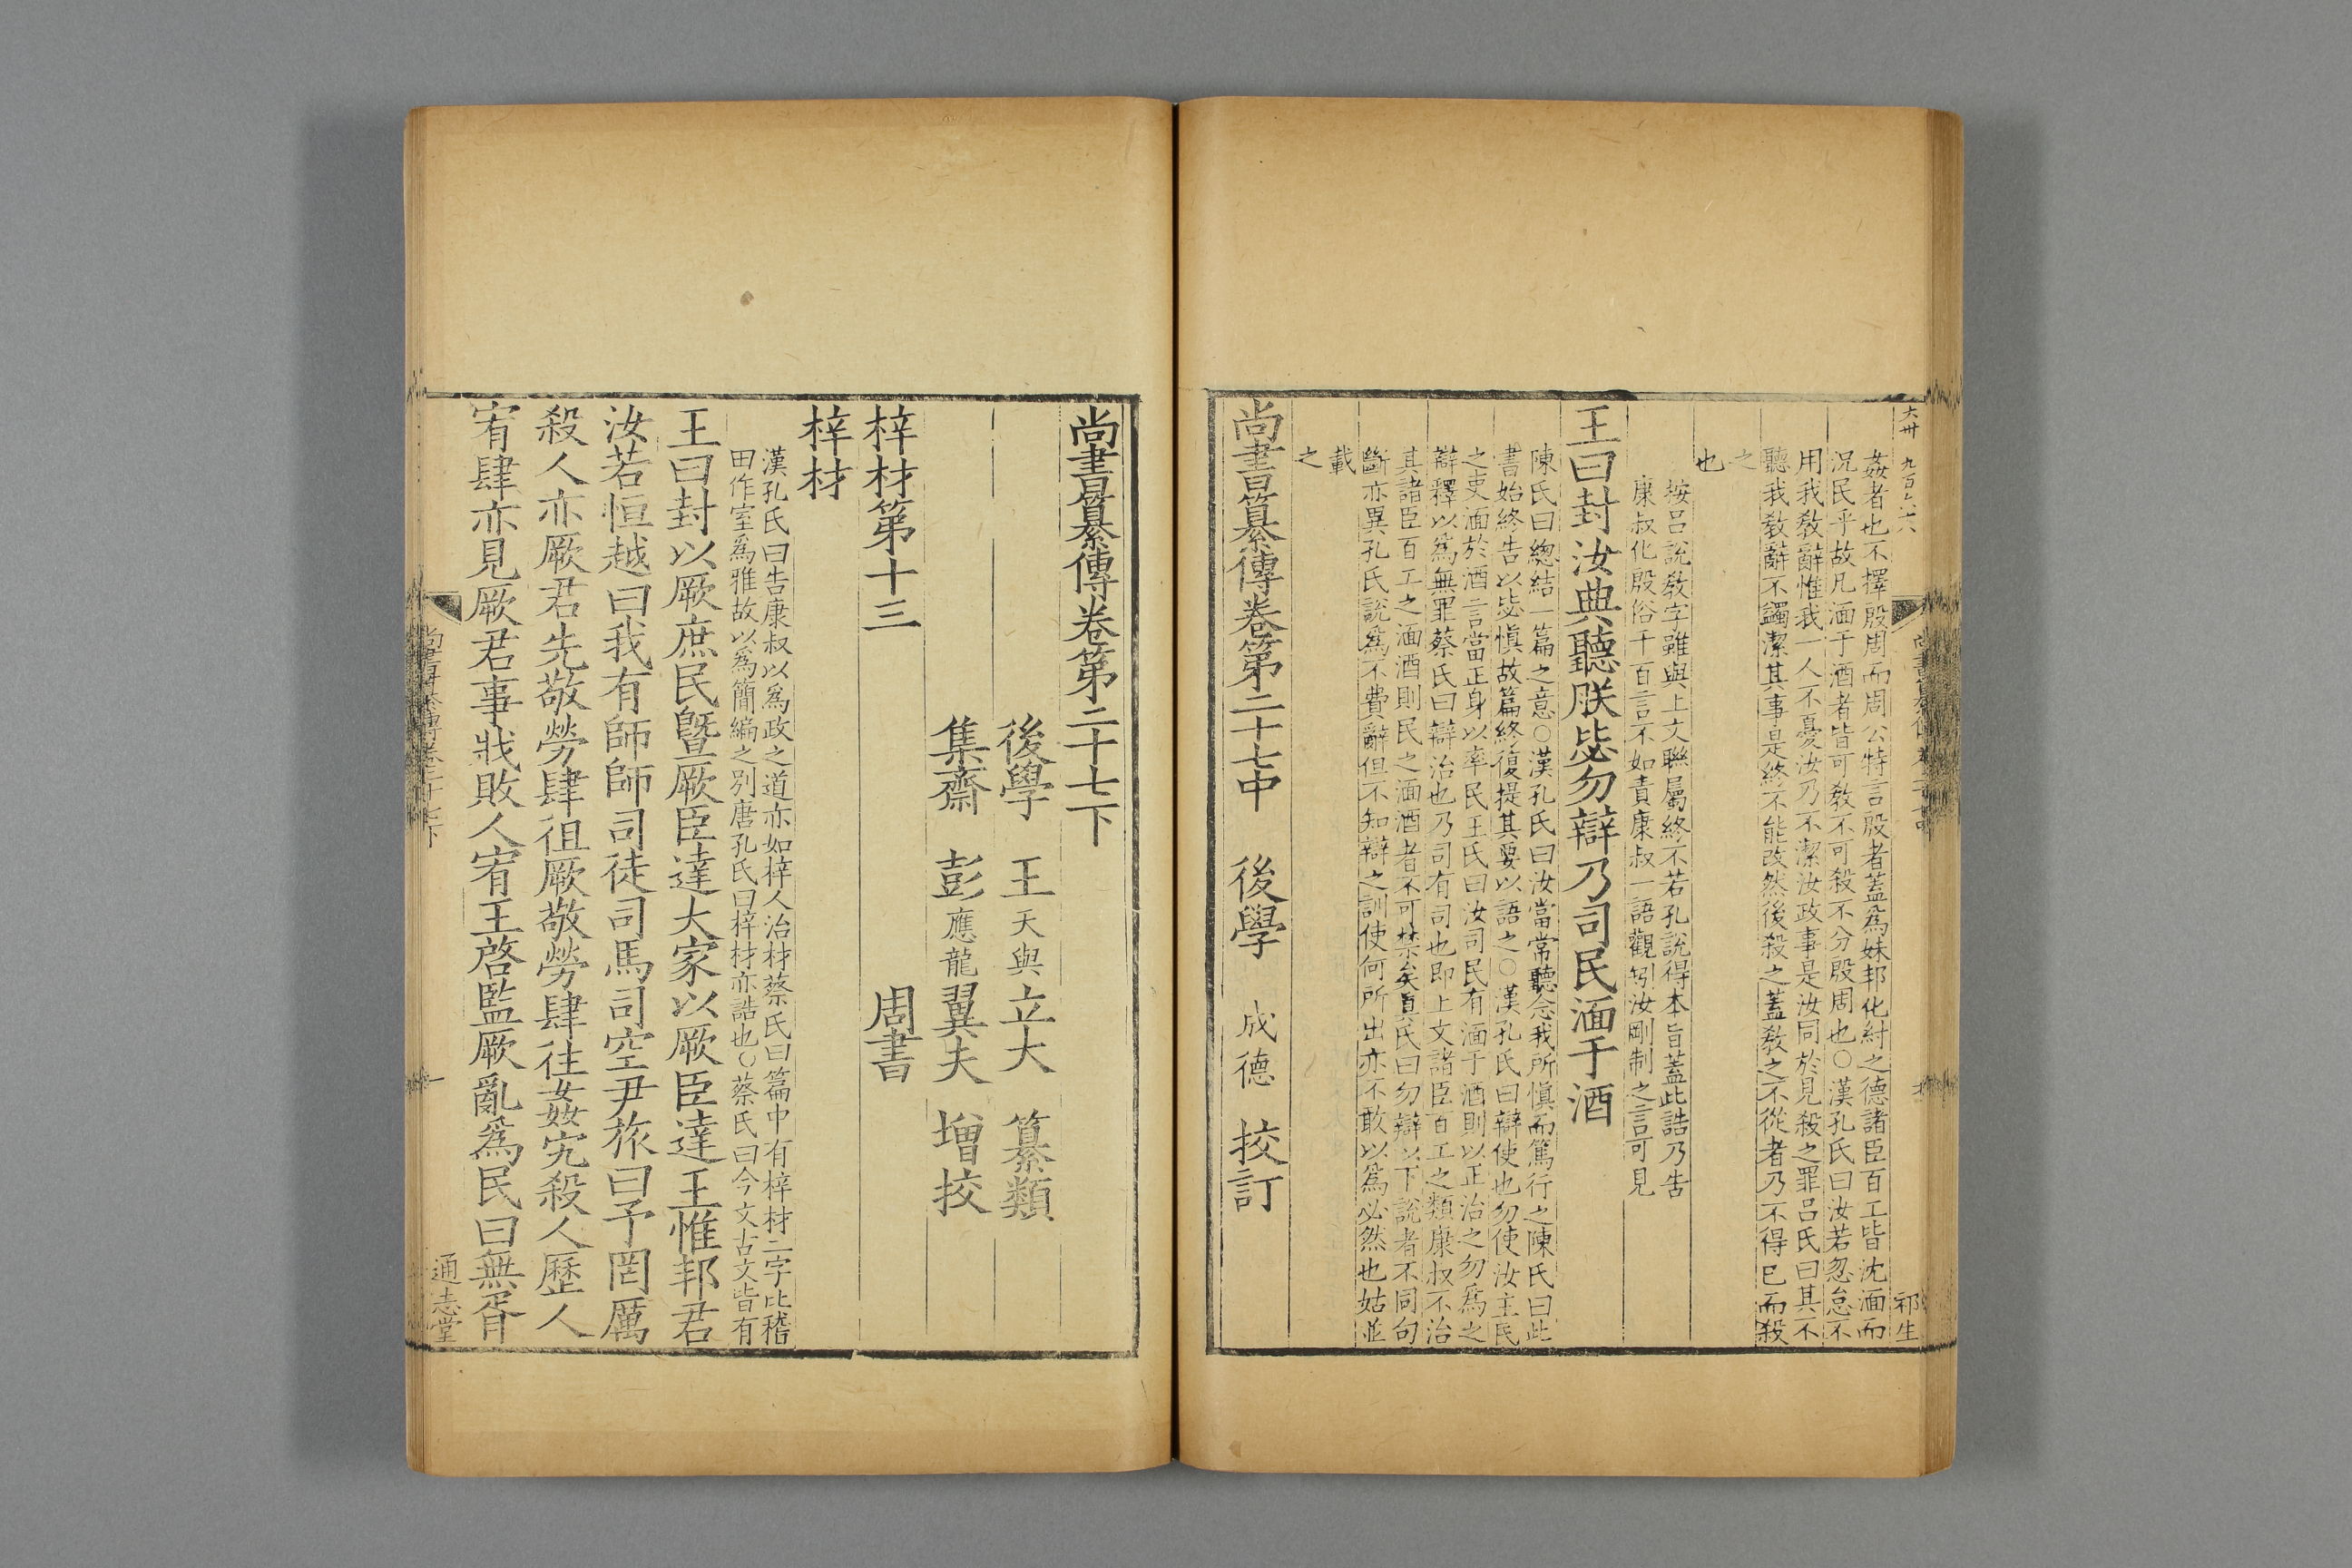 六卅 九百六六
姦者也不擇殷周而周公特言殷者蓋爲妹邦化紂之德諸臣百工皆沈湎而
況民乎故凡湎于酒者皆可敎不可殺不分殷周也○漢孔氏曰汝若忽怠不
用我敎辭惟我一人不憂汝乃不潔汝政事是汝同於見殺之罪呂氏曰其不
聽我敎辭不蠲潔其事是終不能改然後殺之蓋敎之不從者乃不得已而殺
之
也
按呂說敎字雖與上文聯屬終不若孔說得本旨蓋此誥乃告
康叔化殷俗千百言不如責康叔一語觀矧汝剛制之言可見
王曰封汝典聽朕毖勿辯乃司民湎于酒
陳氏曰總結一篇之意○漢孔氏曰汝當常聽念我所愼而篤行之陳氏曰此
書始終告以毖愼故篇終復提其要以語之○漢孔氏曰辯使也勿使汝主民
之吏湎於酒言當正身以率民王氏曰汝司民有湎于酒則以正治之勿爲之
辯釋以爲無罪蔡氏曰辯治也乃司有司也即上文諸臣百工之類康叔不治
其諸臣百工之湎酒則民之湎酒者不可禁矣眞氏曰勿辯以下說者不同句
斷亦異孔氏說爲不費辭但不知辯之訓使何所出亦不敢以爲必然也姑並
載
之
尚書纂傳卷第二十七中 後學 成德 挍訂
祁生
尚書纂傳卷第二十七下
後學 王天與立大 纂類
集齋 彭應龍翼夫 增挍
梓材第十三 周書
梓材
漢孔氏曰告康叔以爲政之道亦如梓人治材蔡氏曰篇中有梓材二字比稽
田作室爲雅故以爲簡編之別唐孔氏曰梓材亦誥也○蔡氏曰今文古文皆有
王曰封以厥庶民曁厥臣達大家以厥臣達王惟邦君
汝若恒越曰我有師師司徒司馬司空尹旅曰予罔厲
殺人亦厥君先敬勞肆徂厥敬勞肆往姦宄殺人歷人
宥肆亦見厥君事戕敗人宥王啓監厥亂爲民曰無胥
尚書纂傳卷二十七下
一
通志堂